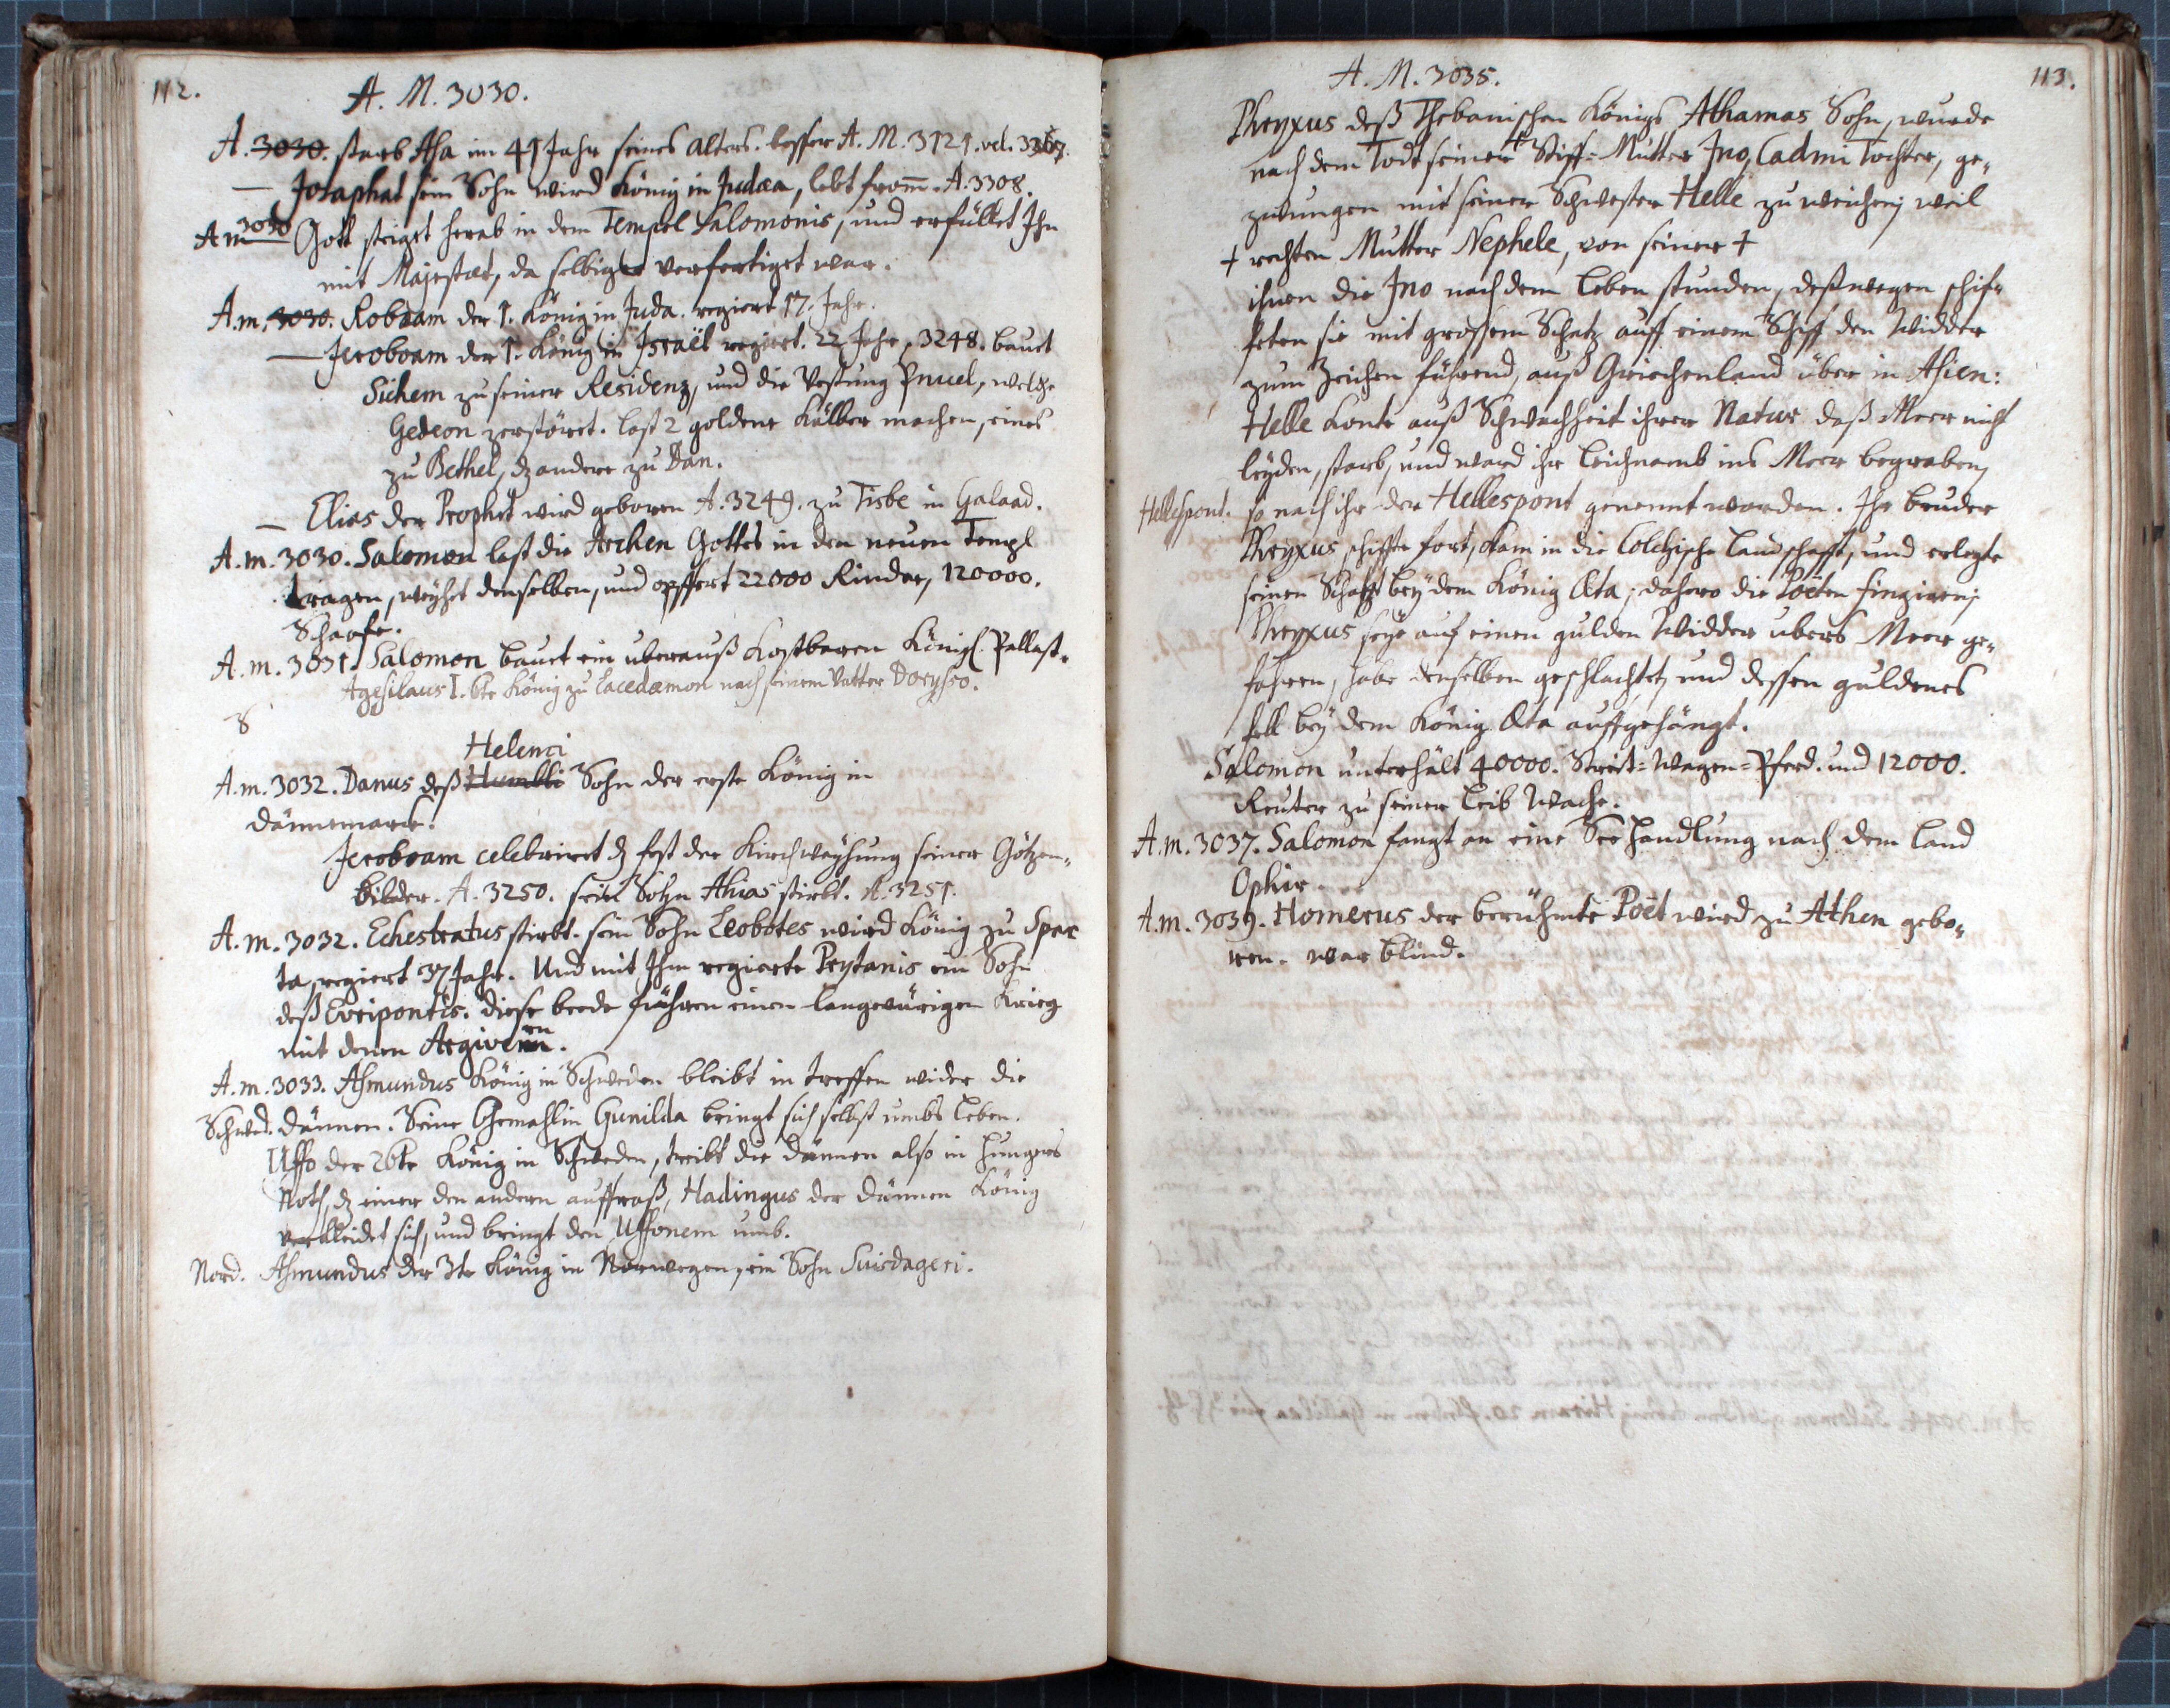 112.
A. M. 3030.
A. 3030. starb Asa im 41 Jahr seines alters. besser A. M. 3121. vel. 3367.
— Josaphat sein Sohn wird König in Judæa, lebt from̄. A. 3308.
A m 3030 Gott steiget herab in dem Tempel Salomonis, und erfüllet Ihn
mit Majestæt, da selbiger verfertiget war.
A. m. 3030. Roboam der 1. König in Juda. regiert 17. Jahr.
— Jeroboam der 1. König in Israël regiert. 22 Jahr, 3248. bauet
Sichem zu seiner Residenz, und die Vestung Pnuel, welche
Gedeon zerstöret. last 2 goldene Kälber machen, eines
zu Bethel, dz andere zu Dan.
— Elias der Prophet wird geboren A. 3249. zu Tisbe in Galaad.
A. m. 3030. Salomon last die Archen Gottes in den neuen Templ
tragen, weyhet denselben, und opffert 22000 Rinder, 120000.
Schaafe.
A. m. 3031. Salomon bauet ein uberauß Kostbaren Königl. Pallast.
Agesilaus I. 6te König zu Lacedæmon nach seinem Vatter Dorysso.
8
Helenei
A. m. 3032. Danus deß Humbli Sohn der erste König in
Dännemarck.
Jeroboam celebriret dz fest der Kirchweyhung seiner Götzen-
bilder. A. 3250. sein Sohn Ahias stirbt. A. 3251.
A. m. 3032. Echestratus stirbt. sein Sohn Leobotes wird König zu Spar
ta, regiert 37 Jahr. Und mit Ihm regierte Prytanis ein Sohn
deß Evripontis. diese beede führen einen langwürigen Krieg
mit denen Argivern.
A. m. 3033. Asmundus König in Schweden bleibt in treffen wider die
Schwed. Dännen. Seine Gemahlin Gunilda bringt sich selbst umbs Leben.
Uffo der 26te König in Schweden, treibt die Dännen also in Hungers
Noth, dz einer den andern auffraß, Hadingus der Dännen König
verkleidet sich, und bringt den Uffonem umb.
Nord. Asmundus der 3te König in Norwegen, ein Sohn Suisdageri.
113.
A. M. 3035.
Phryxus deß Thebanischen Königs Athamas Sohn, wurde
nach dem Todt seiner + Stiff-Mutter Ino, Cadmi Tochter, ge-
zwungen mit seiner Schwester Helle zu weichen, weil
+ rechten Mutter Nephele, von seiner +
ihnen die Ino nach dem Leben stunden, deßwegen schif-
feten sie mit grossem Schatz auff einem Schiff den Widder
zum Zeichen führend, auß Griechenland über in Asien:
Helle konte auß Schwachheit ihrer Natur daß Meer nicht
leyden, starb, und ward ihr Leichnamb ins Meer begraben,
Hellespont. so nach ihr der Hellespont genennt worden. Ihr bruder
Phryxus schiffte fort, kam in die Colchische Landschafft, und erlegte
seinen Schatz bey dem König Æta; dahero die Poëten fingiren,
Phryxus seye auf einen gulden Widder ubers Meer ge-
fahren, habe denselben geschlachtet, und dessen guldenes
fell bey dem König Æta auffgehängt.
Salomon unterhält 40000. Streit-Wagen-Pferd. und 12000.
Reuter zu seiner Leib Wache.
A. m. 3037. Salomon fangt an eine See Handlung nach dem Land
Ophir.
A. m. 3039. Homerus der berühmte Poët wird zu Athen gebo-
ren. war blind.